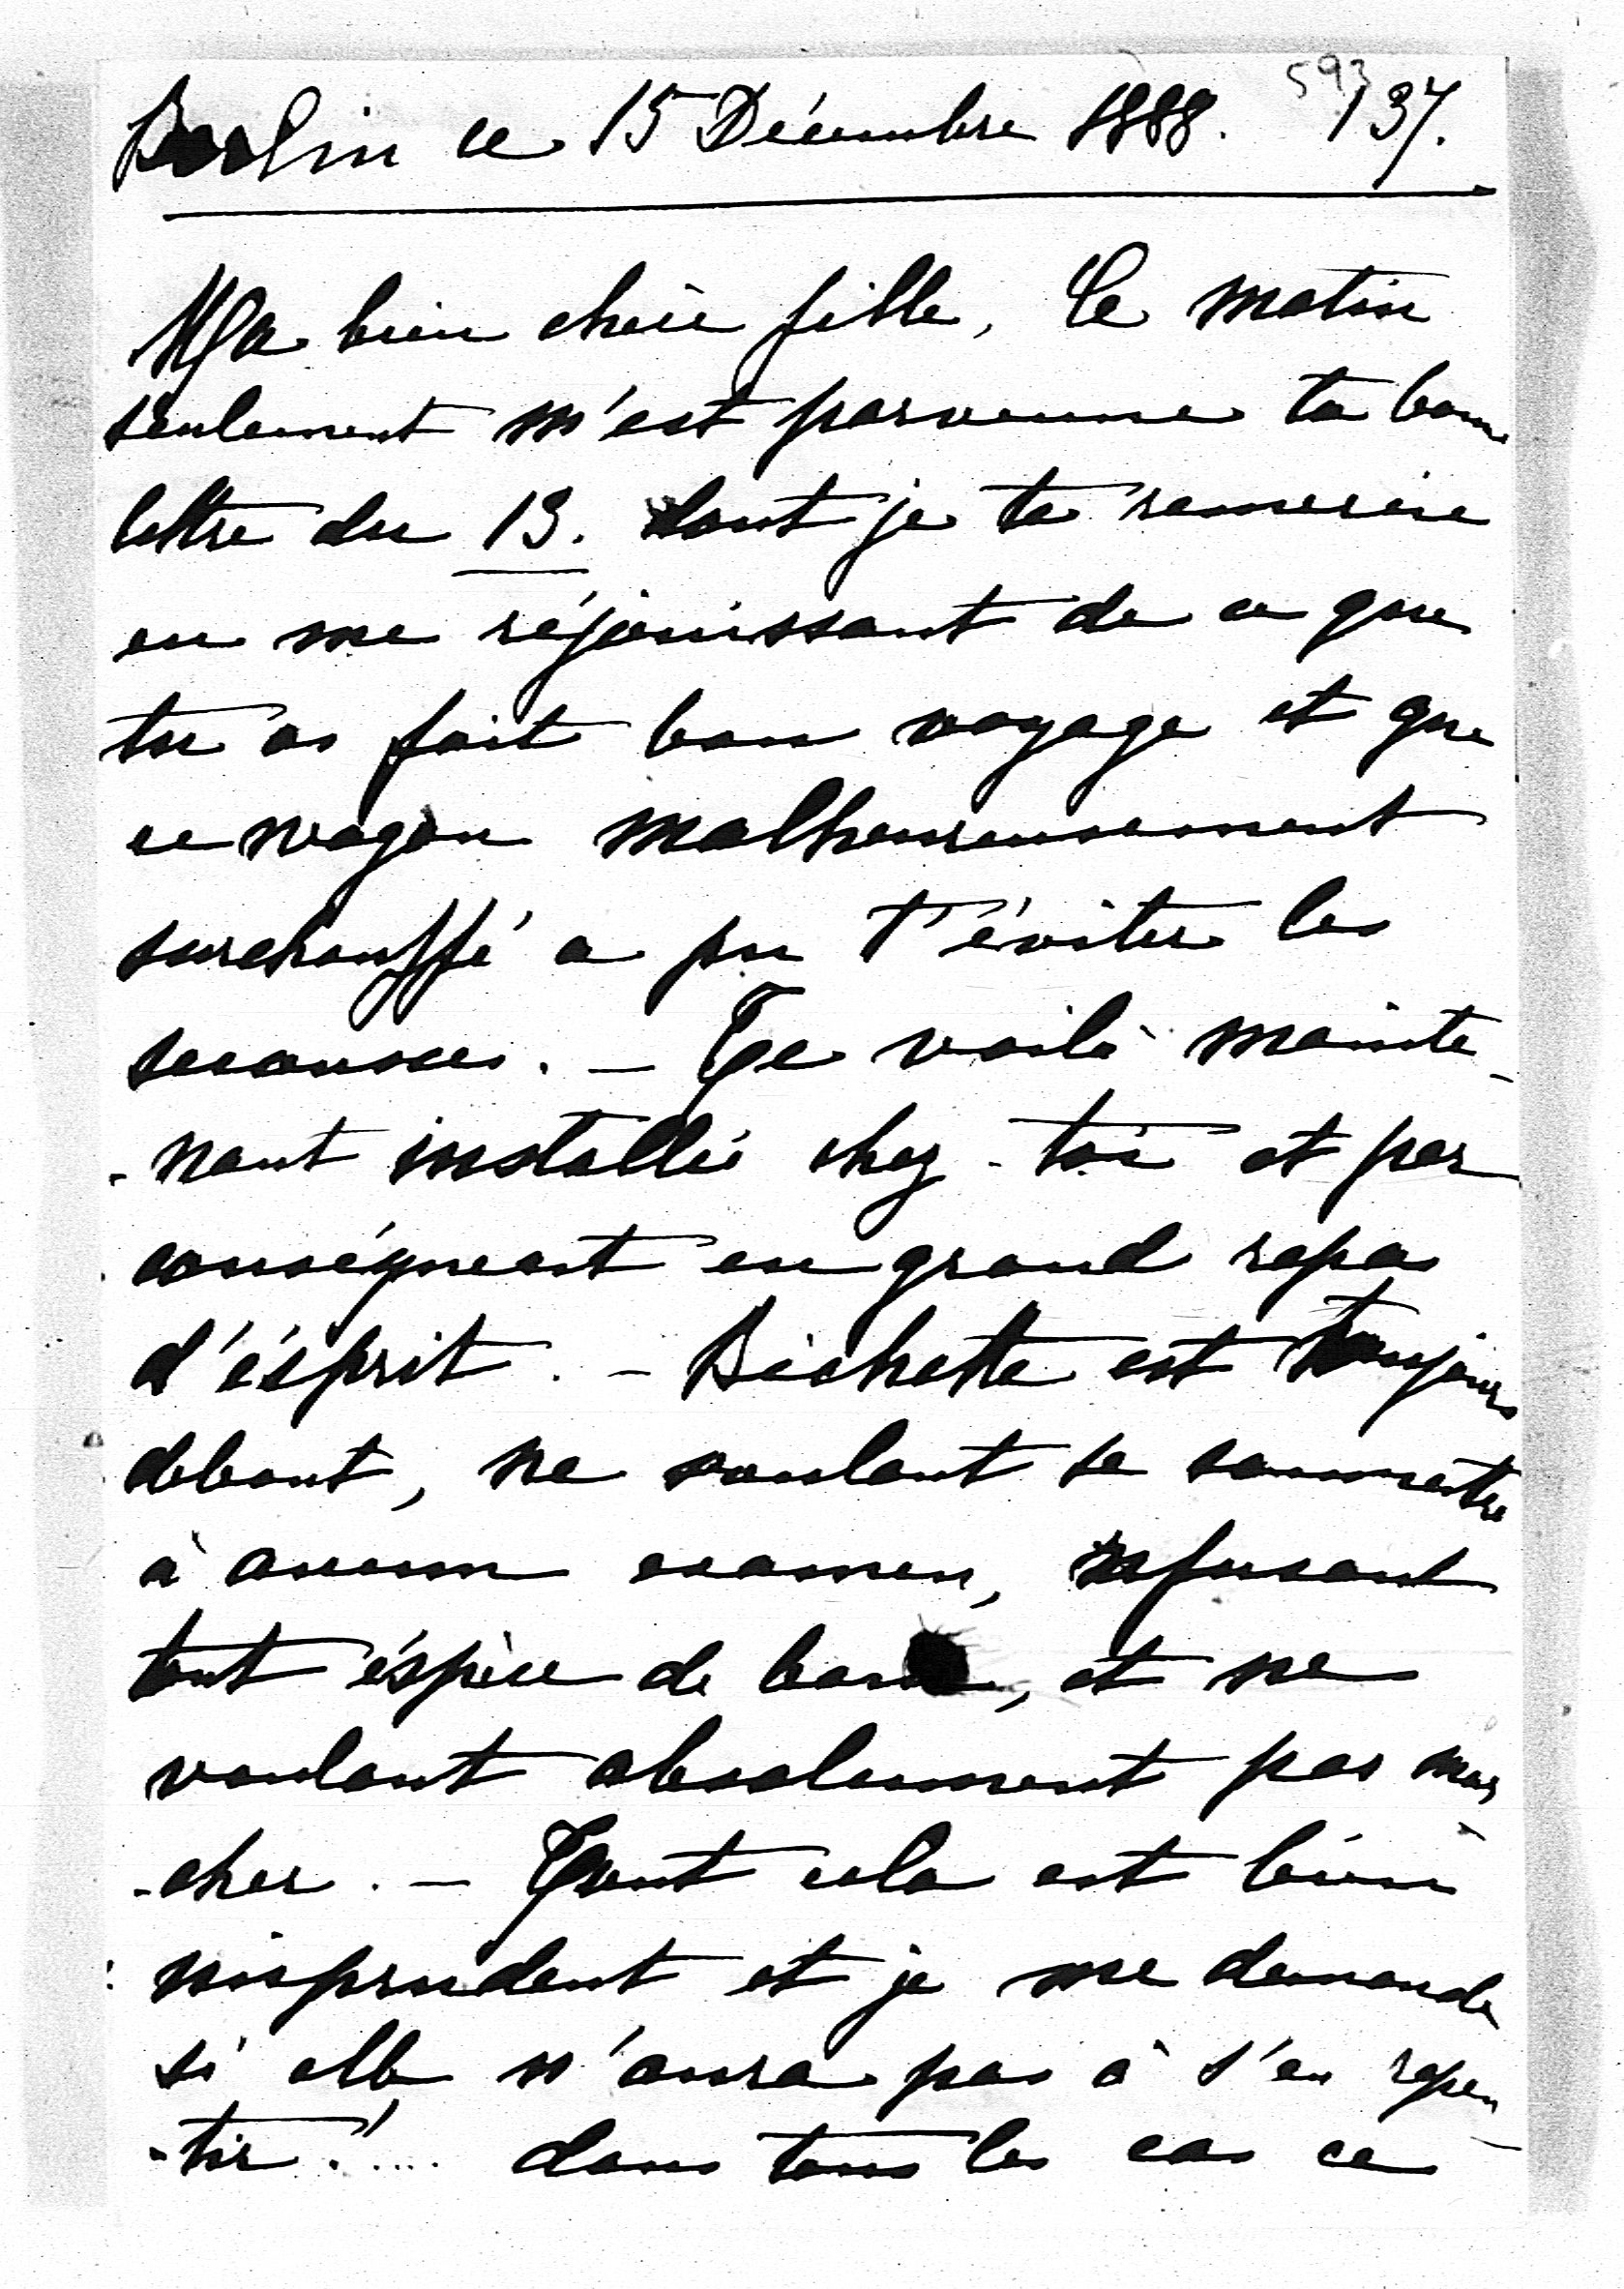 Berlin ce 15 Décembre 1888. 593 137.
Ma bien chère fille, Ce matin
seulement m'est parvenue ta bonne
lettre du 13. dont je te remercie
en me réjouissant de ce que
tu as fait bon voyage et que
ce wagon malheureusement
surchauffé a pu t'éviter les
secousses. - Te voilà mainte-
-nant installée chez-toi et par
conséquent en grand repos
d'ésprit. - Bichette est toujours
debout, ne voulant se soumettre
à aucun examen, refusant
tout éspèce de , et ne
voulant absolument pas mar-
-cher. - Tout cela est bien
imprudent et je me demande
si elle n'aura pas à s'en repen-
-tir!.... dans tous les cas ce